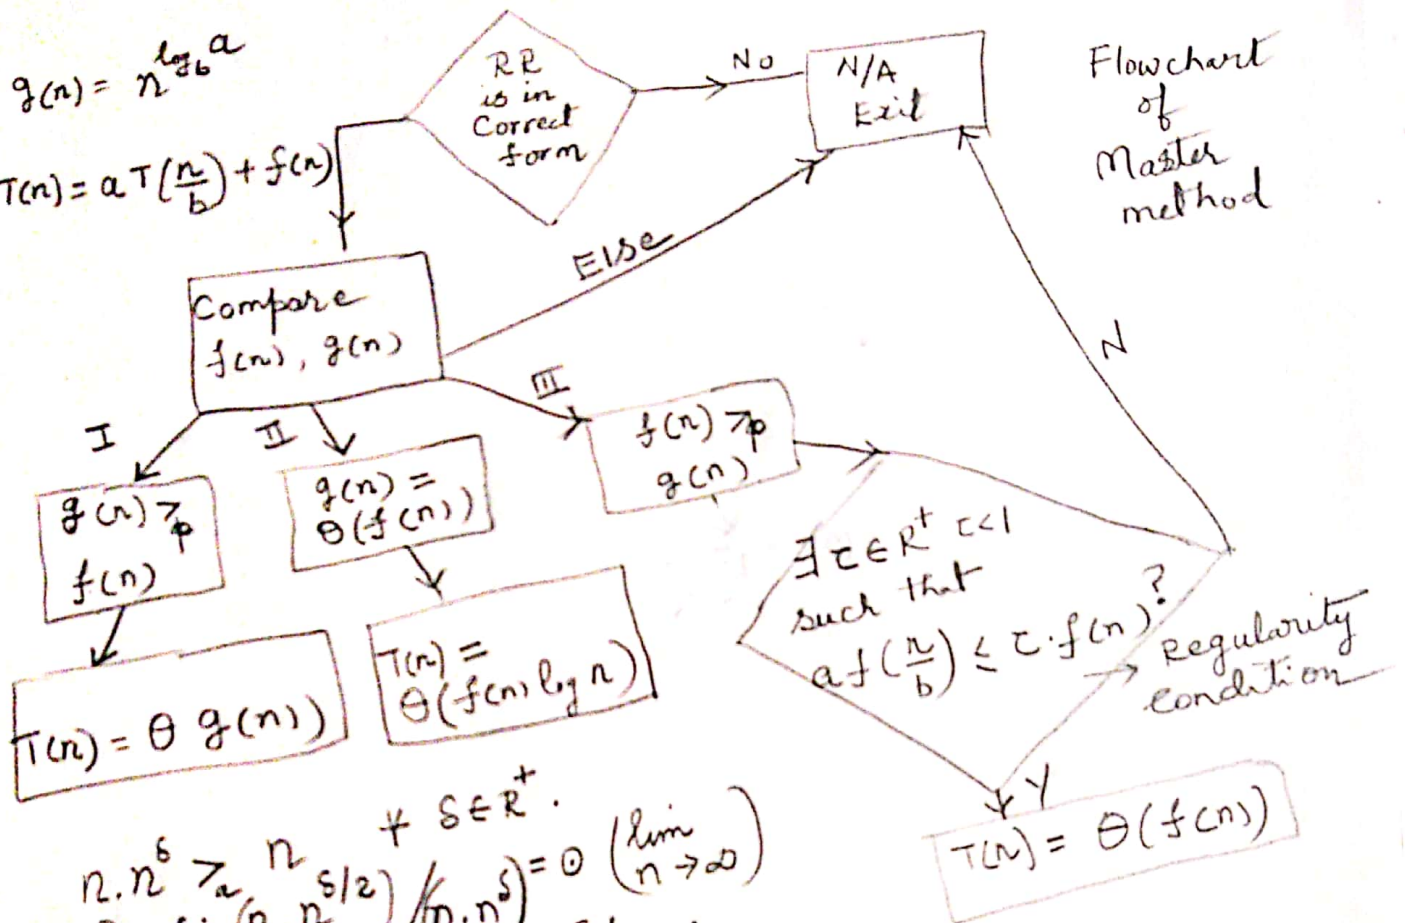 g(n) = n^log_b a
T(n) = a T(n/b) + f(n)
RR
is in
Correct
form
No
N/A
Exit
Flowchart
of
Master
method
Compare
f(n), g(n)
Else
N
I
II
III
g(n) >p
f(n)
g(n) =
θ(f(n))
f(n) >p
g(n)
T(n) = θ g(n))
T(n) =
θ(f(n) log n)
∃ τ ∈ R⁺ τ<1
such that
a f(n/b) ≤ τ·f(n)?
→ Regularity
condition
Y
T(n) = θ(f(n))
n.n^δ > n ∀ δ ∈ R⁺.
(n.n^δ/2)/(n.n^δ) = 0 (lim n→∞)